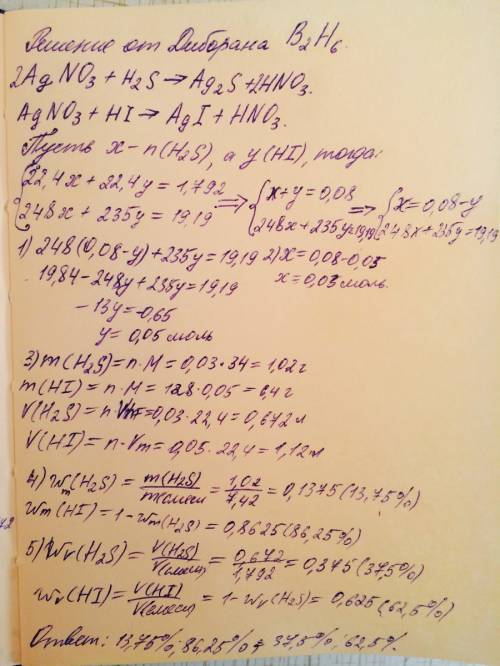 Решение от Диборана B₂H₆.
2AgNO₃ + H₂S → Ag₂S + 2HNO₃.
AgNO₃ + HI → AgI + HNO₃.
Пусть x – n(H₂S), а y (HI), тогда:
{22,4x + 22,4y = 1,792 ⇒ {x + y = 0,08 ⇒ {x = 0,08 – y
{248x + 235y = 19,19 {248x + 235y = 19,19 {248x + 235y = 19,19
1) 248(0,08 – y) + 235y = 19,19 2) x = 0,08 – 0,05
19,84 – 248y + 235y = 19,19 x = 0,03 моль.
– 13y = –0,65
y = 0,05 моль
3) m(H₂S) = n·M = 0,03·34 = 1,02 г
m(HI) = n·M = 128·0,05 = 6,4 г
V(H₂S) = n·Vm = 0,03·22,4 = 0,672 л
V(HI) = n·Vm = 0,05·22,4 = 1,12 л
4) Wm(H₂S) = m(H₂S)/m(смеси) = 1,02/7,42 = 0,1375 (13,75%)
Wm(HI) = 1 – Wm(H₂S) = 0,8625 (86,25%)
5) Wv(H₂S) = V(H₂S)/V(смеси) = 0,672/1,792 = 0,375 (37,5%)
Wv(HI) = V(HI)/V(смеси) = 1 – Wv(H₂S) = 0,625 (62,5%)
Ответ: 13,75%; 86,25% 37,5%; 62,5%.